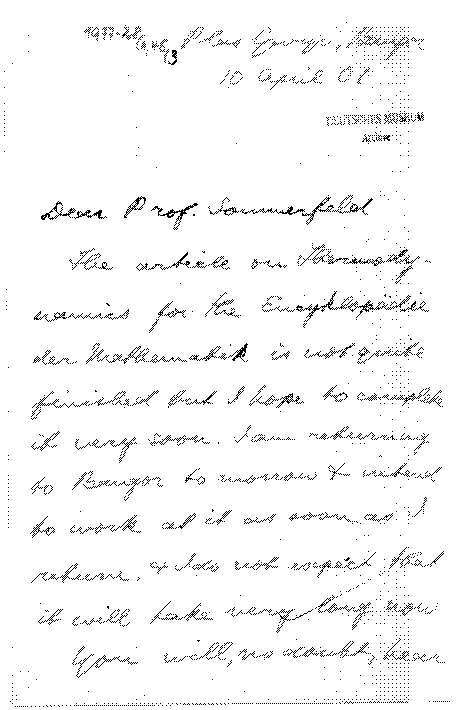 1977-28/A,46/3
Plas Gwryd, Bangor
10 April 01
DEUTSCHES MUSEUM
ARCHIV
Dear Prof. Sommerfeld
The article on Thermody-
namics for the Encyklopädie
der Mathematik is not quite
finished but I hope to complete
it very soon. I am returning
to Bangor to morrow & intend
to work at it as soon as I
return, & I do not expect that
it will take very long now
You will, no doubt, hear